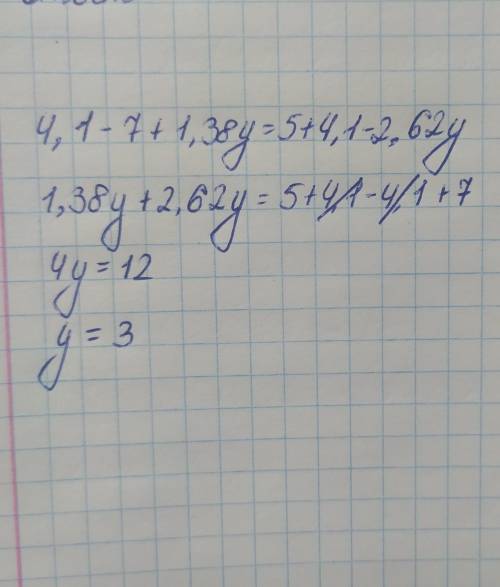 4,1-7+1,38y=5+4,1-2,62y
1,38y+2,62y=5+4,1-4,1+7
4y=12
y=3